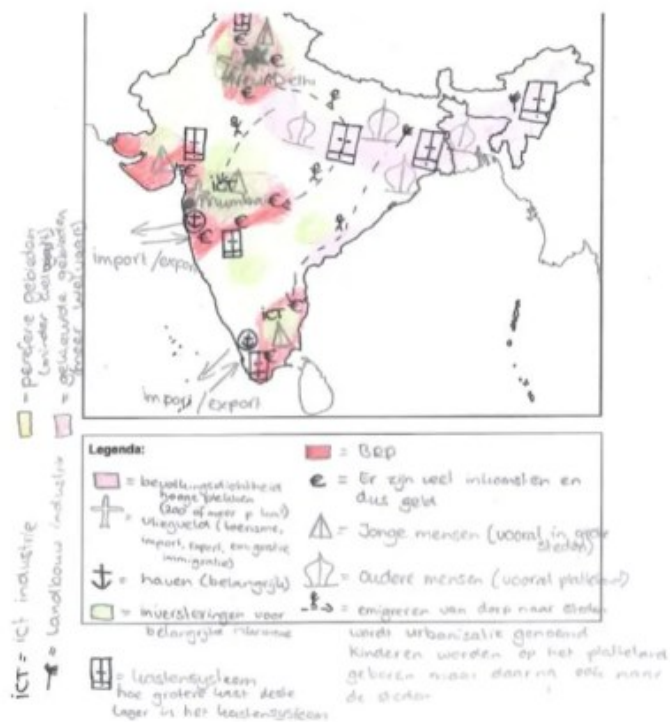 New Delhi
€
€
€
ICT
Mumbai
€
€
€
import/export
€
ICT
€
import/export
= perefere gebieden
(minder
= gebieden
(meer welvaart)
ICT = ICT industrie
= Landbouw industrie
Legenda:
= bevolkingsdichtheid
hoge plekken
(200 of meer p km²)
= vliegveld (toerisme,
import, export, emigratie
immigratie)
= haven (belangrijk)
= investeringen voor
belangrijke
= kastensysteem
hoe grotere kast deste
lager in het kastensysteem
= BRP
€ = Er zijn veel inkomsten en
dus geld
= Jonge mensen (vooral in grote
steden)
= Oudere mensen (vooral platteland)
= emigreren van dorp naar steden
wordt urbanisatie genoemd
Kinderen worden op het platteland
geboren maar daarna ook naar
de steden